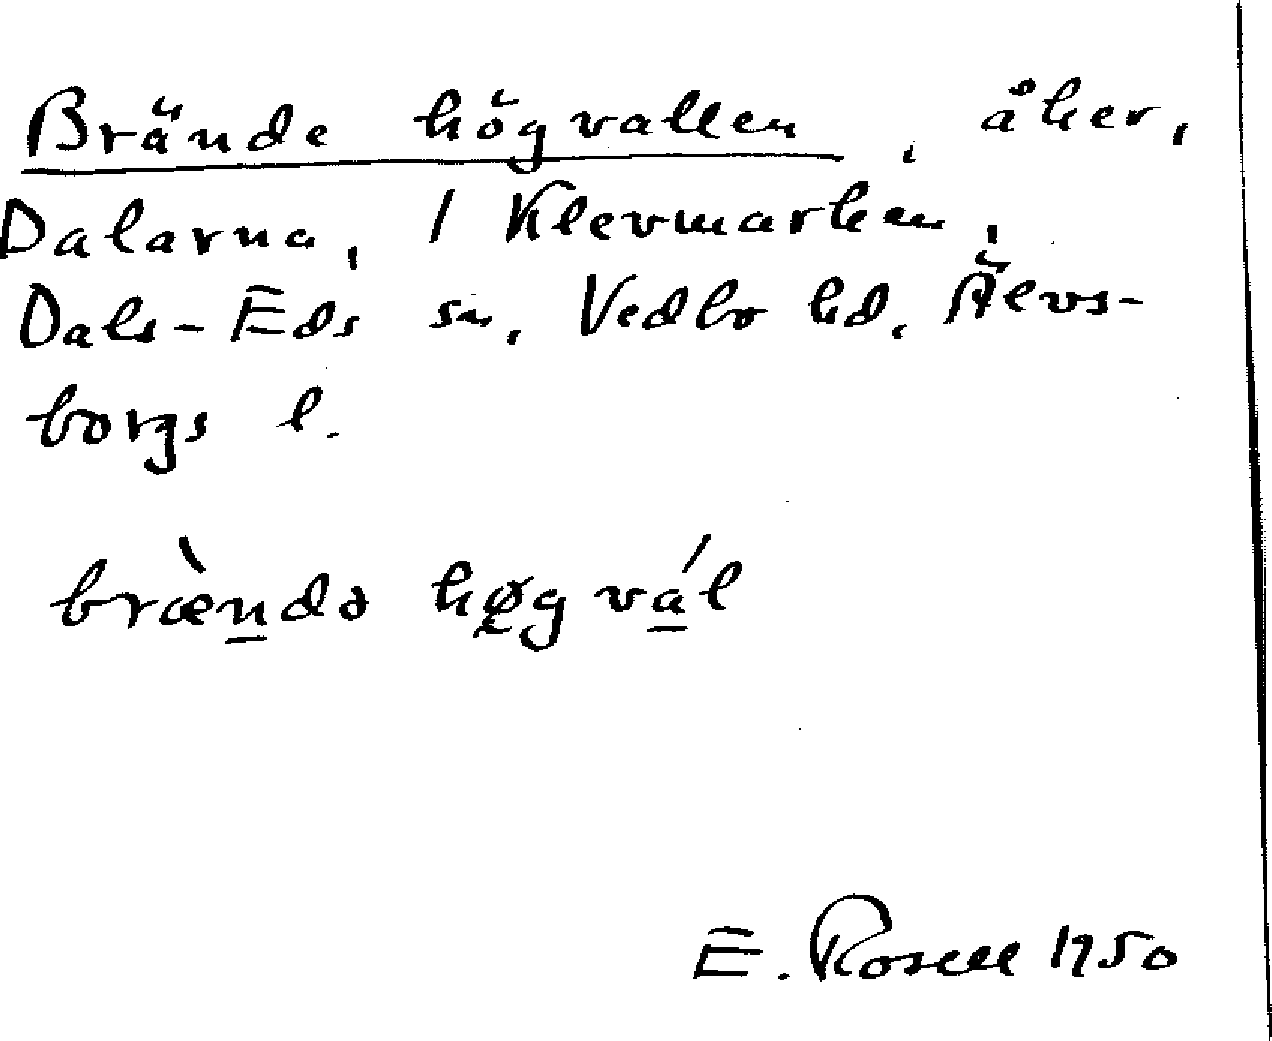 Brände högvallen, åker,
Dalarna, / Klevmarken,
Dals-Eds sn, Vedbo hd, Älvs-
borgs l.
bræ̀n̲də hø̨gvá̲l
E. Rosell 1950